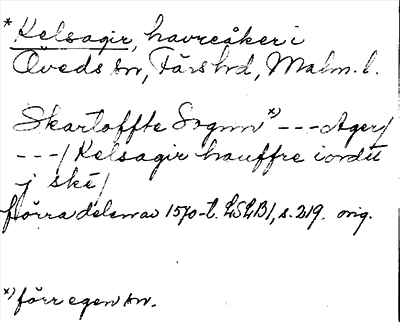 * Kelsagir, havreåker i
Öveds sn, Färs hd, Malm. l.
Skartoffte Sognn *) --- Ager/
---/ Kelsagir hauffre iordtt
j ské/
förra delen av 1570-t. LSLB1, s. 219. orig.
*) förr egen sn.